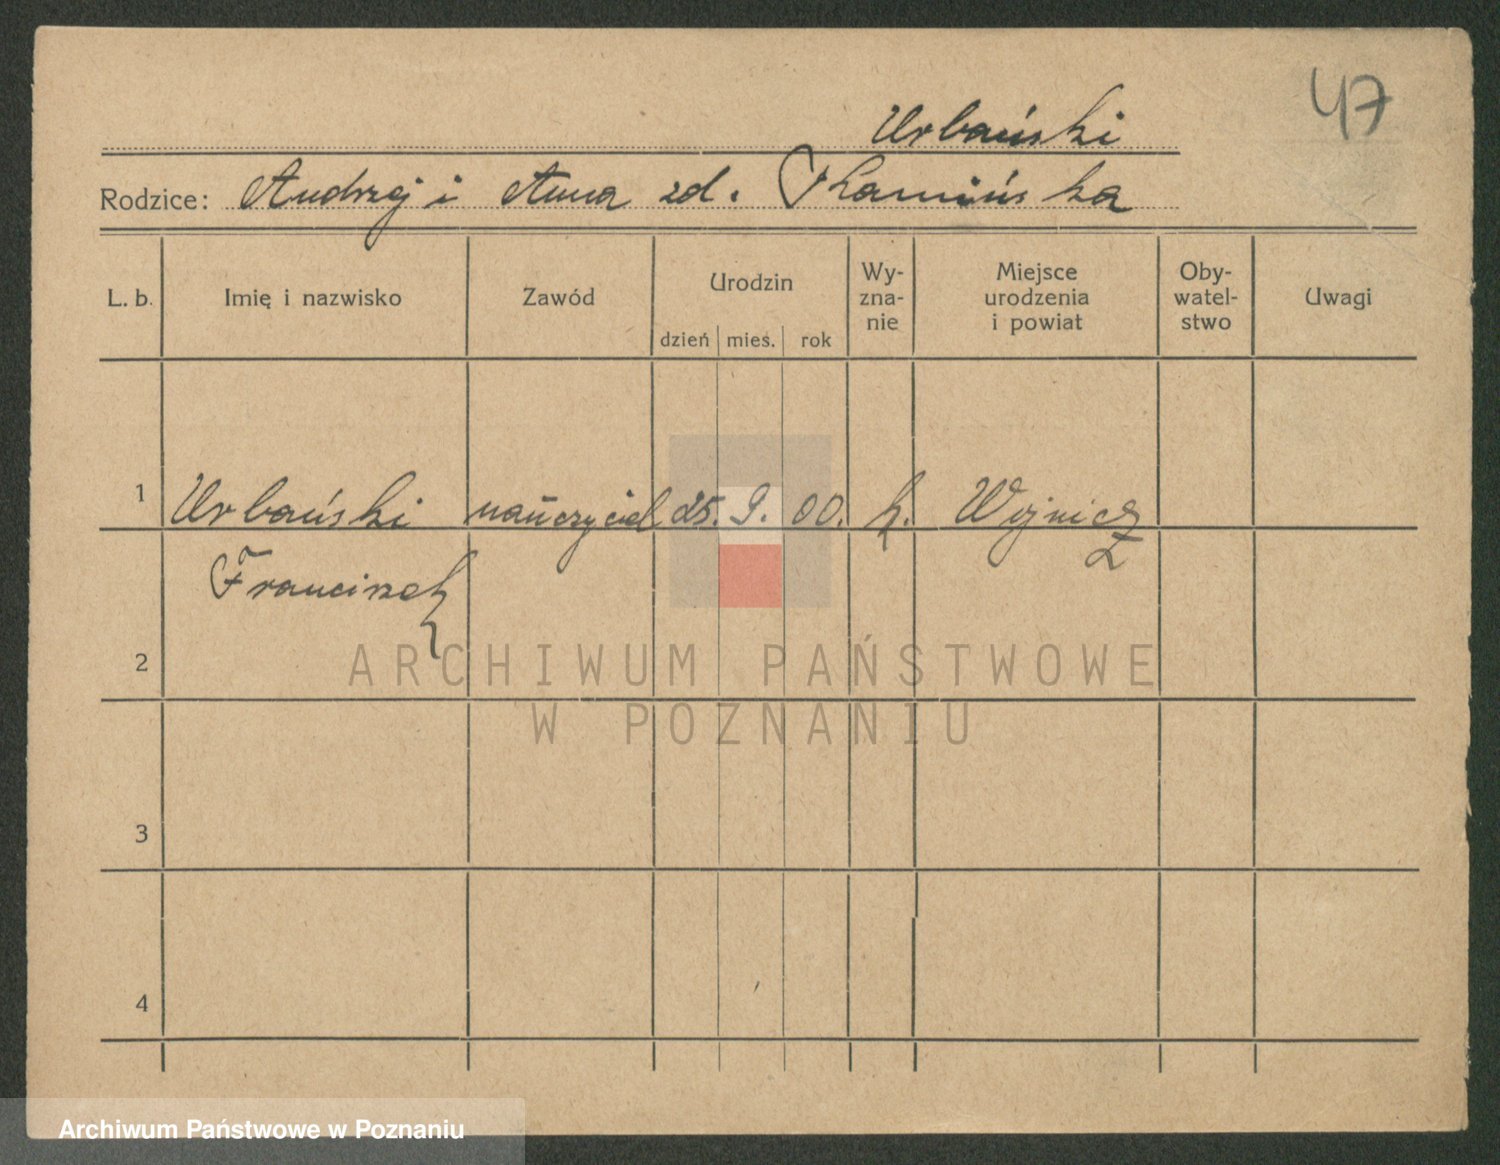 47
Urbański
Rodzice: Andrzej i Anna zd. Kamińska
L. b. Imię i nazwisko Zawód Urodzin dzień mies. rok Wy-zna-nie Miejsce urodzenia i powiat Oby-watel-stwo Uwagi
1 Urbański nauczyciel 25. 9. 00. k. Wojnicz
Franciszek
2
ARCHIWUM PAŃSTWOWE
W POZNANIU
3
4
Archiwum Państwowe w Poznaniu